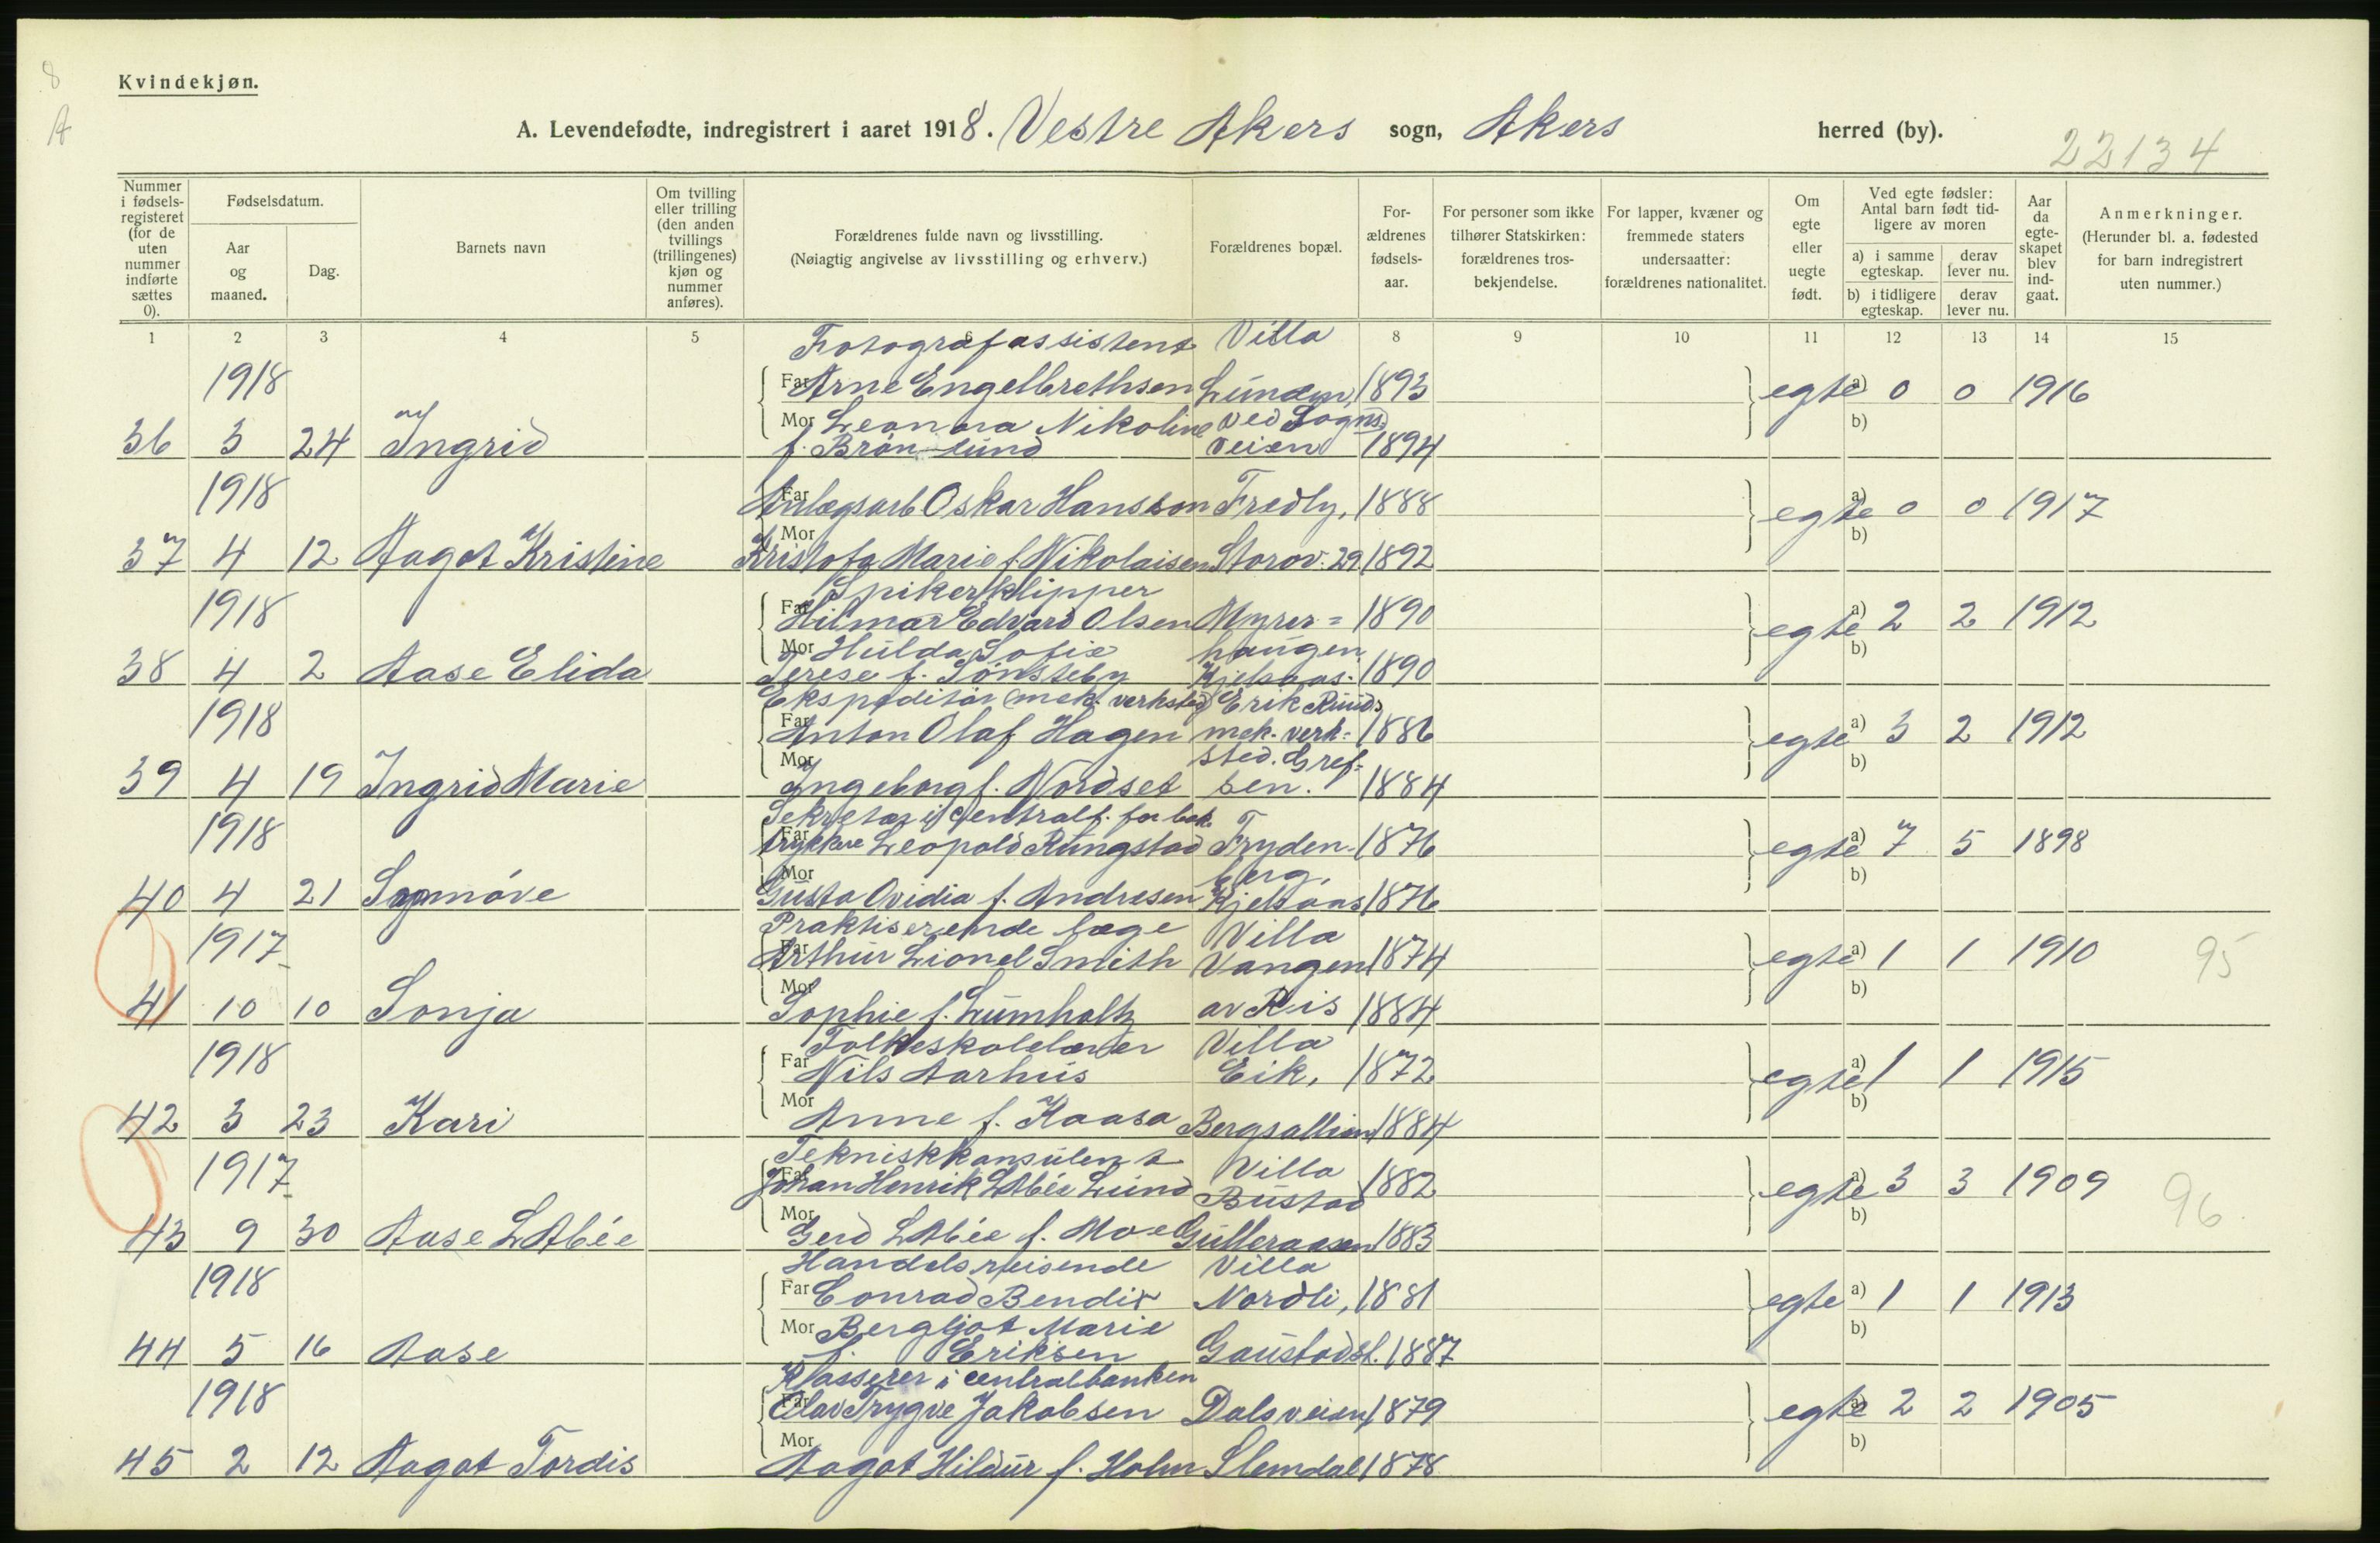 8
A
Kvindekjøn.
A. Levendefødte, indregistrert i aaret 1918. Vestre Akers sogn, Akers herred (by).
22134
Nummer i fødsels-registeret (for de uten nummer indførte sættes 0).
Fødselsdatum.
Aar og maaned.
Dag.
Barnets navn
Om tvilling eller trilling (den anden tvillings (trillingenes) kjøn og nummer anføres).
Forældrenes fulde navn og livsstilling.
(Nøiagtig angivelse av livsstilling og erhverv.)
Forældrenes bopæl.
For-ældrenes fødsels-aar.
For personer som ikke tilhører Statskirken: forældrenes tros-bekjendelse.
For lapper, kvæner og fremmede staters undersaatter: forældrenes nationalitet.
Om egte eller uegte født.
Ved egte fødsler: Antal barn født tid-ligere av moren
a) i samme egteskap. derav lever nu.
b) i tidligere egteskap. derav lever nu.
Aar da egte-skapet blev ind-gaat.
Anmerkninger.
(Herunder bl. a. fødested for barn indregistrert uten nummer.)
1 2 3 4 5 6 8 9 10 11 12 13 14 15
Fotografassistent Villa
1918 Far Arne Engelbrethsen Lunden, 1893 egte a) 0 0 1916
Mor Leonora Nikoline ved Sogns- b)
36 3 24 Ingrid f. Brønlund veien 1894
1918 Far Anlægsarb Oskar Hansson Fredly, 1888 egte a) 0 0 1917
Mor b)
37 4 12 Aagot Kristine Kristofa Marie f. Nikolaisen Storov. 29 1892
Spikerklipper
1918 Far Hilmar Edvard Olsen Myrer= 1890 egte a) 2 2 1912
Mor Hulda Sofie haugen b)
38 4 2 Aase Elida Terese f. Sønsteby Kjelsaas. 1890
Ekspeditør (mek. verksted) Erik Ruuds
1918 Far Anton Olaf Hagen mek. verk= 1886 egte a) 3 2 1912
Mor sted. Gref= b)
39 4 19 Ingrid Marie Ingeborg f. Nordset sen. 1884
Sekretær i Centralf. for bok
1918 Far trykkere Leopold Rungstad Fryden- 1876 egte a) 7 5 1898
Mor berg, b)
40 4 21 Synnøve Gusta Ovidia f. Andresen Kjelsaas 1876
Praktiserende læge Villa
1917 Far Arthur Lionel Smith Vangen 1874 egte a) 1 1 1910 95
Mor b)
41 10 10 Sonja Sophie f. Lumholtz av Ris 1884
Folkeskolelærer Villa
1918 Far Nils Aarhus Eik, 1872 egte a) 1 1 1915
Mor b)
42 3 23 Kari Anne f. Kaasa Bergsallien 1884
Tekniskkonsulent Villa
1917 Far Johan Henrik L'Abée Lund Bustad 1882 egte a) 3 3 1909 96
Mor b)
43 9 30 Aase L'Abée Gerd L'Abée f. Moe Gulleraasen 1883
Handelsreisende Villa
1918 Far Conrad Bendix Nordli, 1881 egte a) 1 1 1913
Mor Bergljot Marie b)
44 5 16 Aase f. Eriksen Gaustadst. 1887
Kasserer i centralbanken
1918 Far Olav Trygve Jakobsen Dalsveien, 1879 egte a) 2 2 1905
Mor b)
45 2 12 Aagot Tordis Aagot Hildur f. Holm Slemdal 1878